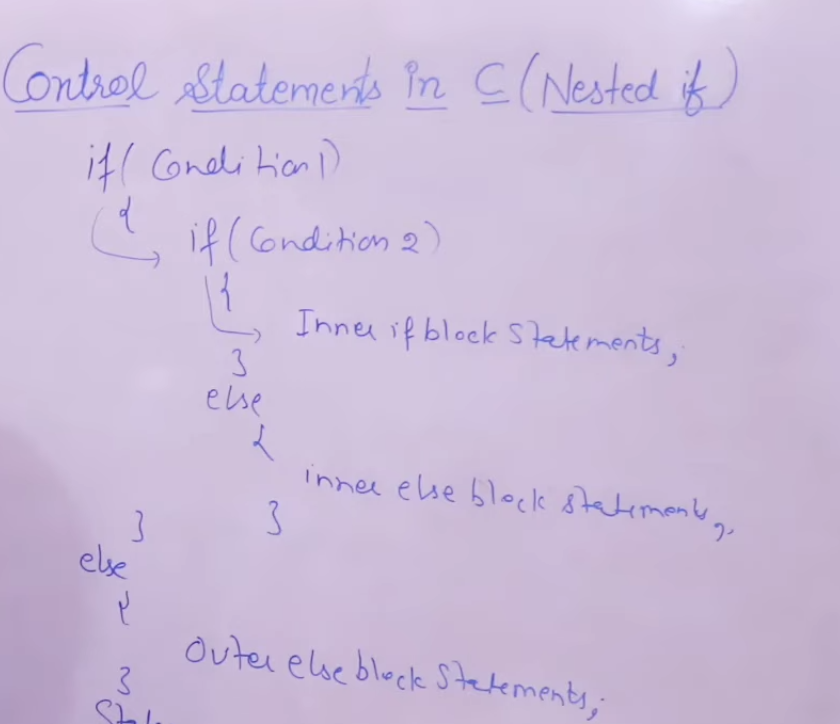 Control Statements in C (Nested if)
if( Condition 1)
{
if (Condition 2)
{
Inner if block Statements;
}
else
{
inner else block statements;
} }
else
{
Outer else block Statements;
}